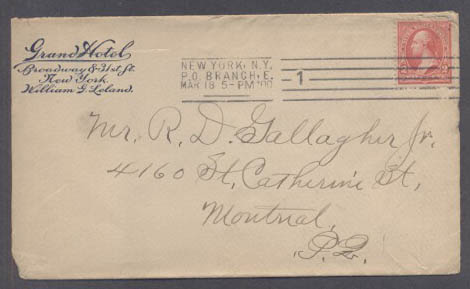 Grand Hotel
Broadway & 31st St.
New York.
William G. Leland.
NEW YORK, N.Y.
P.O. BRANCH E.
MAR 18 5-PM '00
1
Mr. R. D. Gallagher Jr.
4160 St. Catherine St,
Montrial,
P.Q.